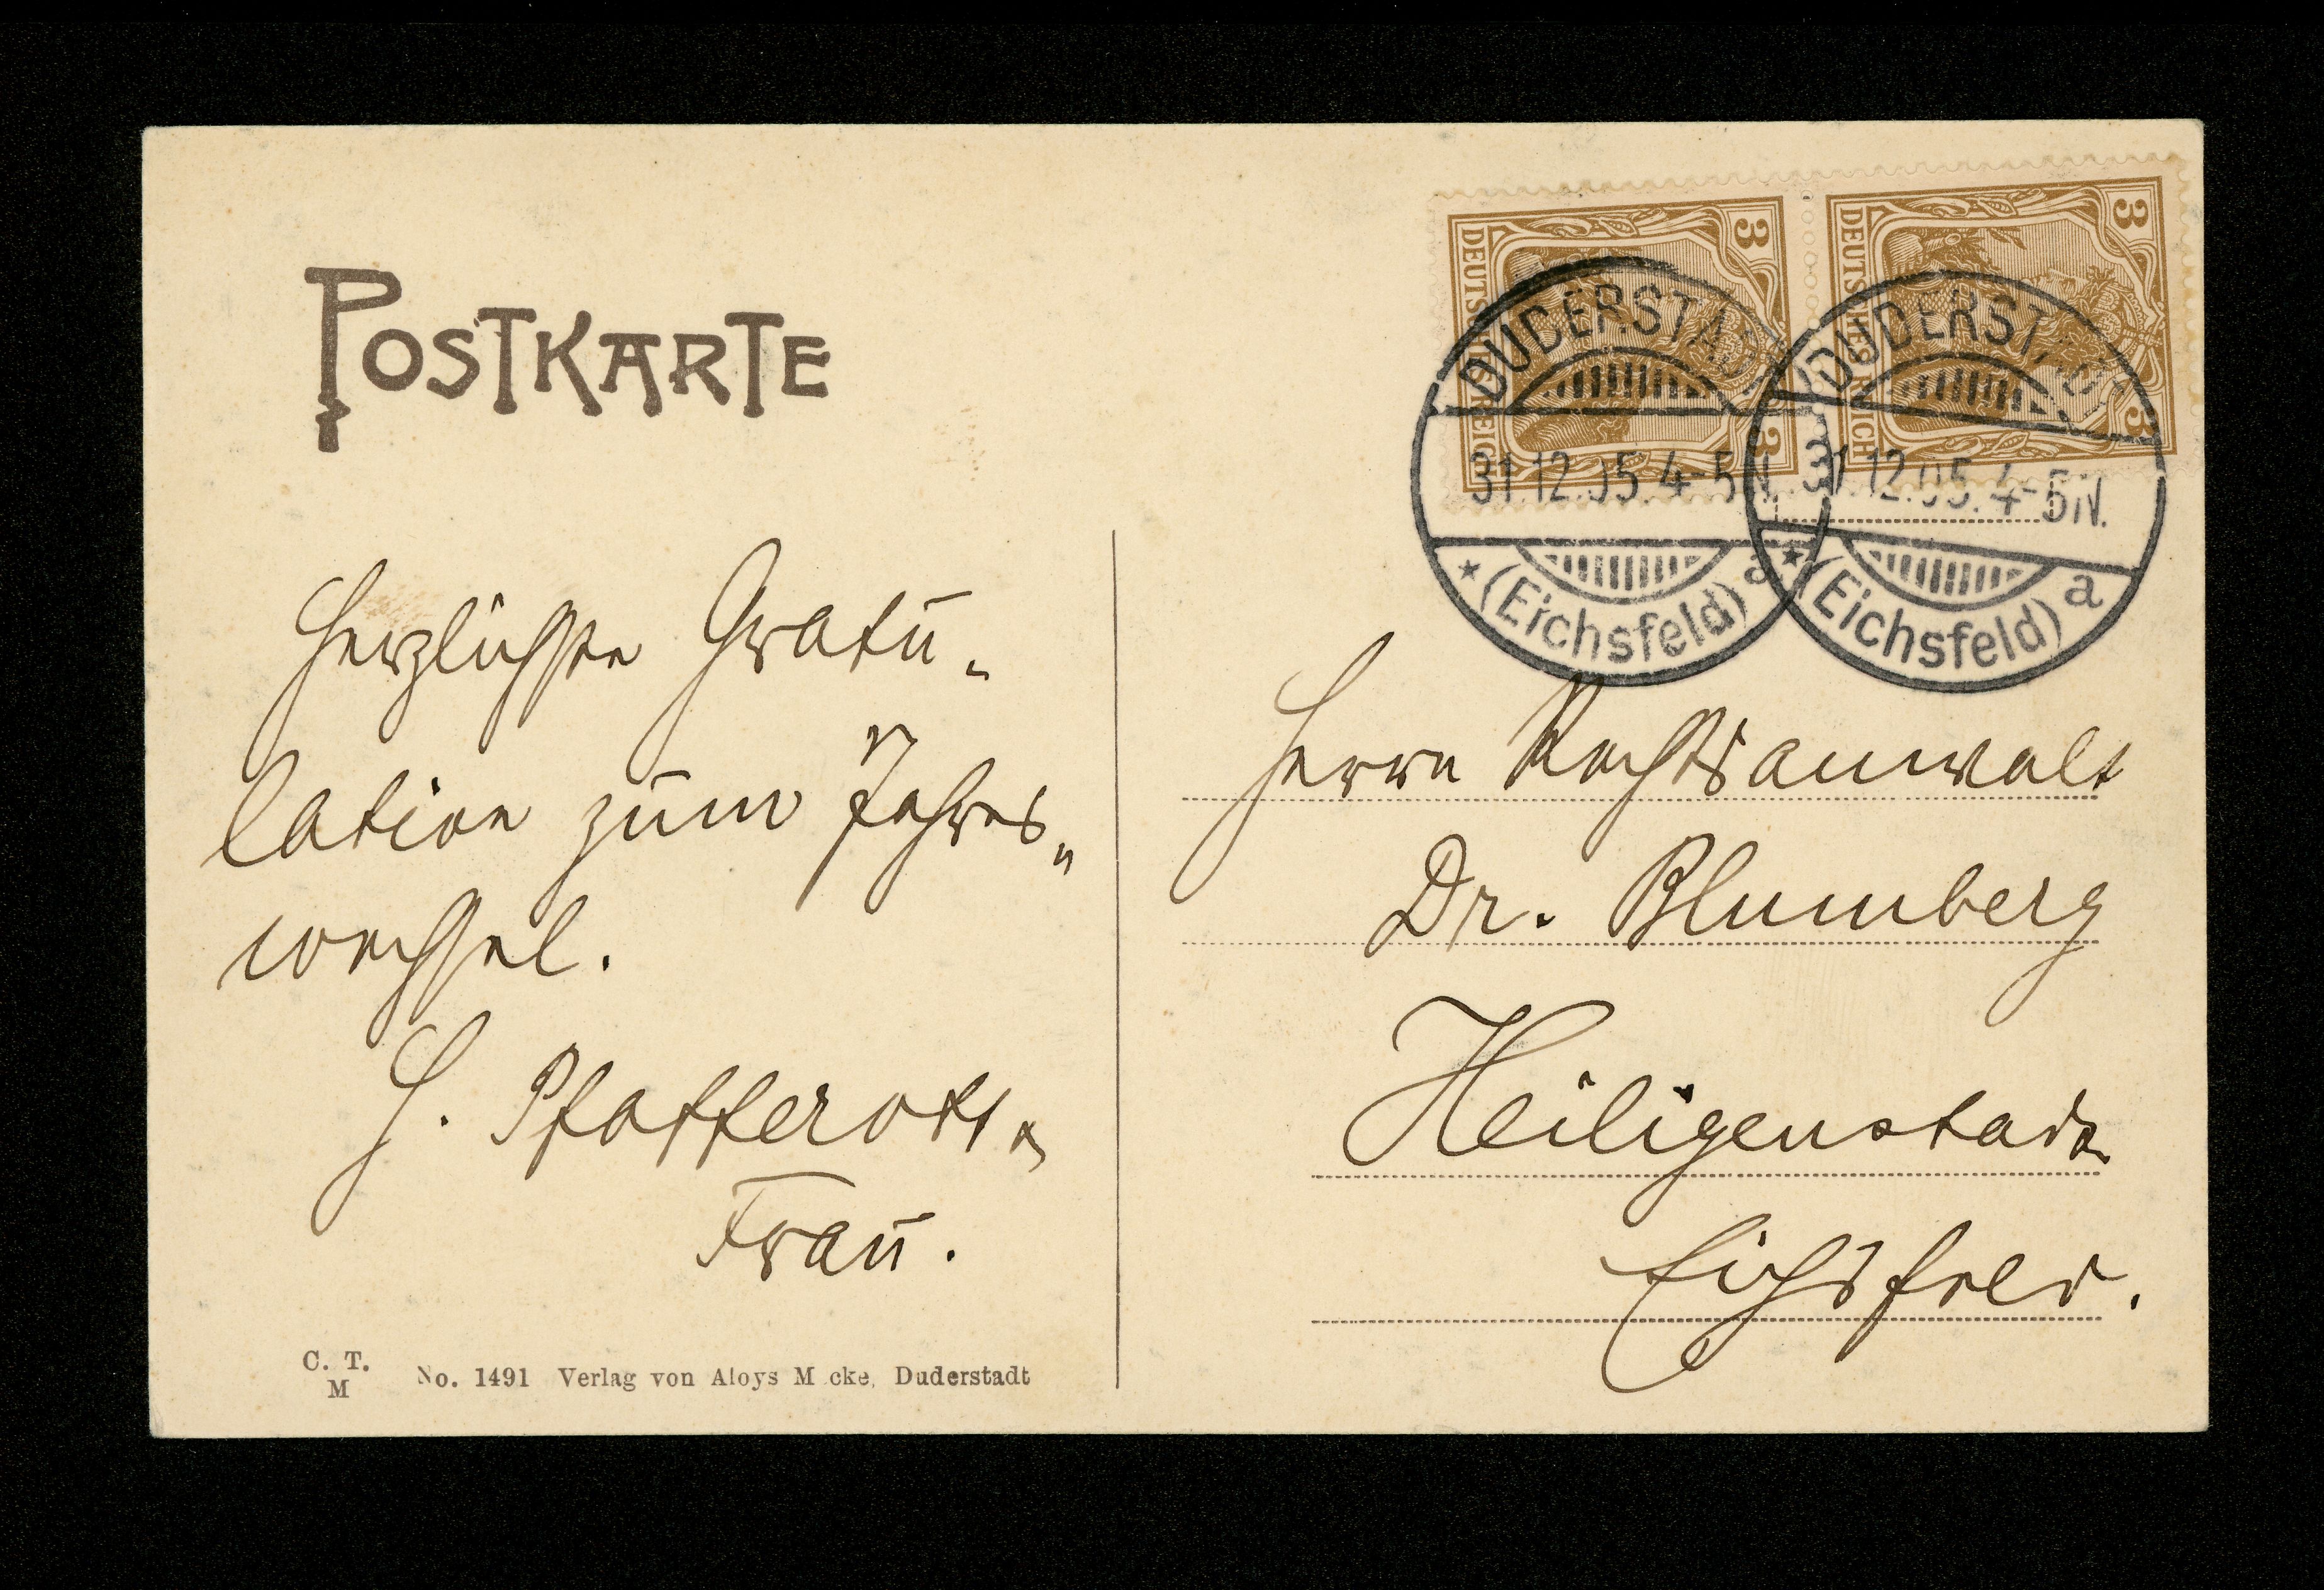 POSTKARTE
3 3
DEUTSCHES REICH
3 3
DEUTSCHES REICH
DUDERSTADT
31.12.05.4-5N.
* (Eichsfeld) a
DUDERSTADT
31.12.05.4-5N.
* (Eichsfeld) a
Herzlichste Gratu-
lation zum Jahres-
wechsel.
H. Pfafferott u
Frau.
Herrn Rechtsanwalt
Dr. Blumberg
Heiligenstadt
Eichsfeld.
C. T.
M
No. 1491 Verlag von Aloys Mecke, Duderstadt